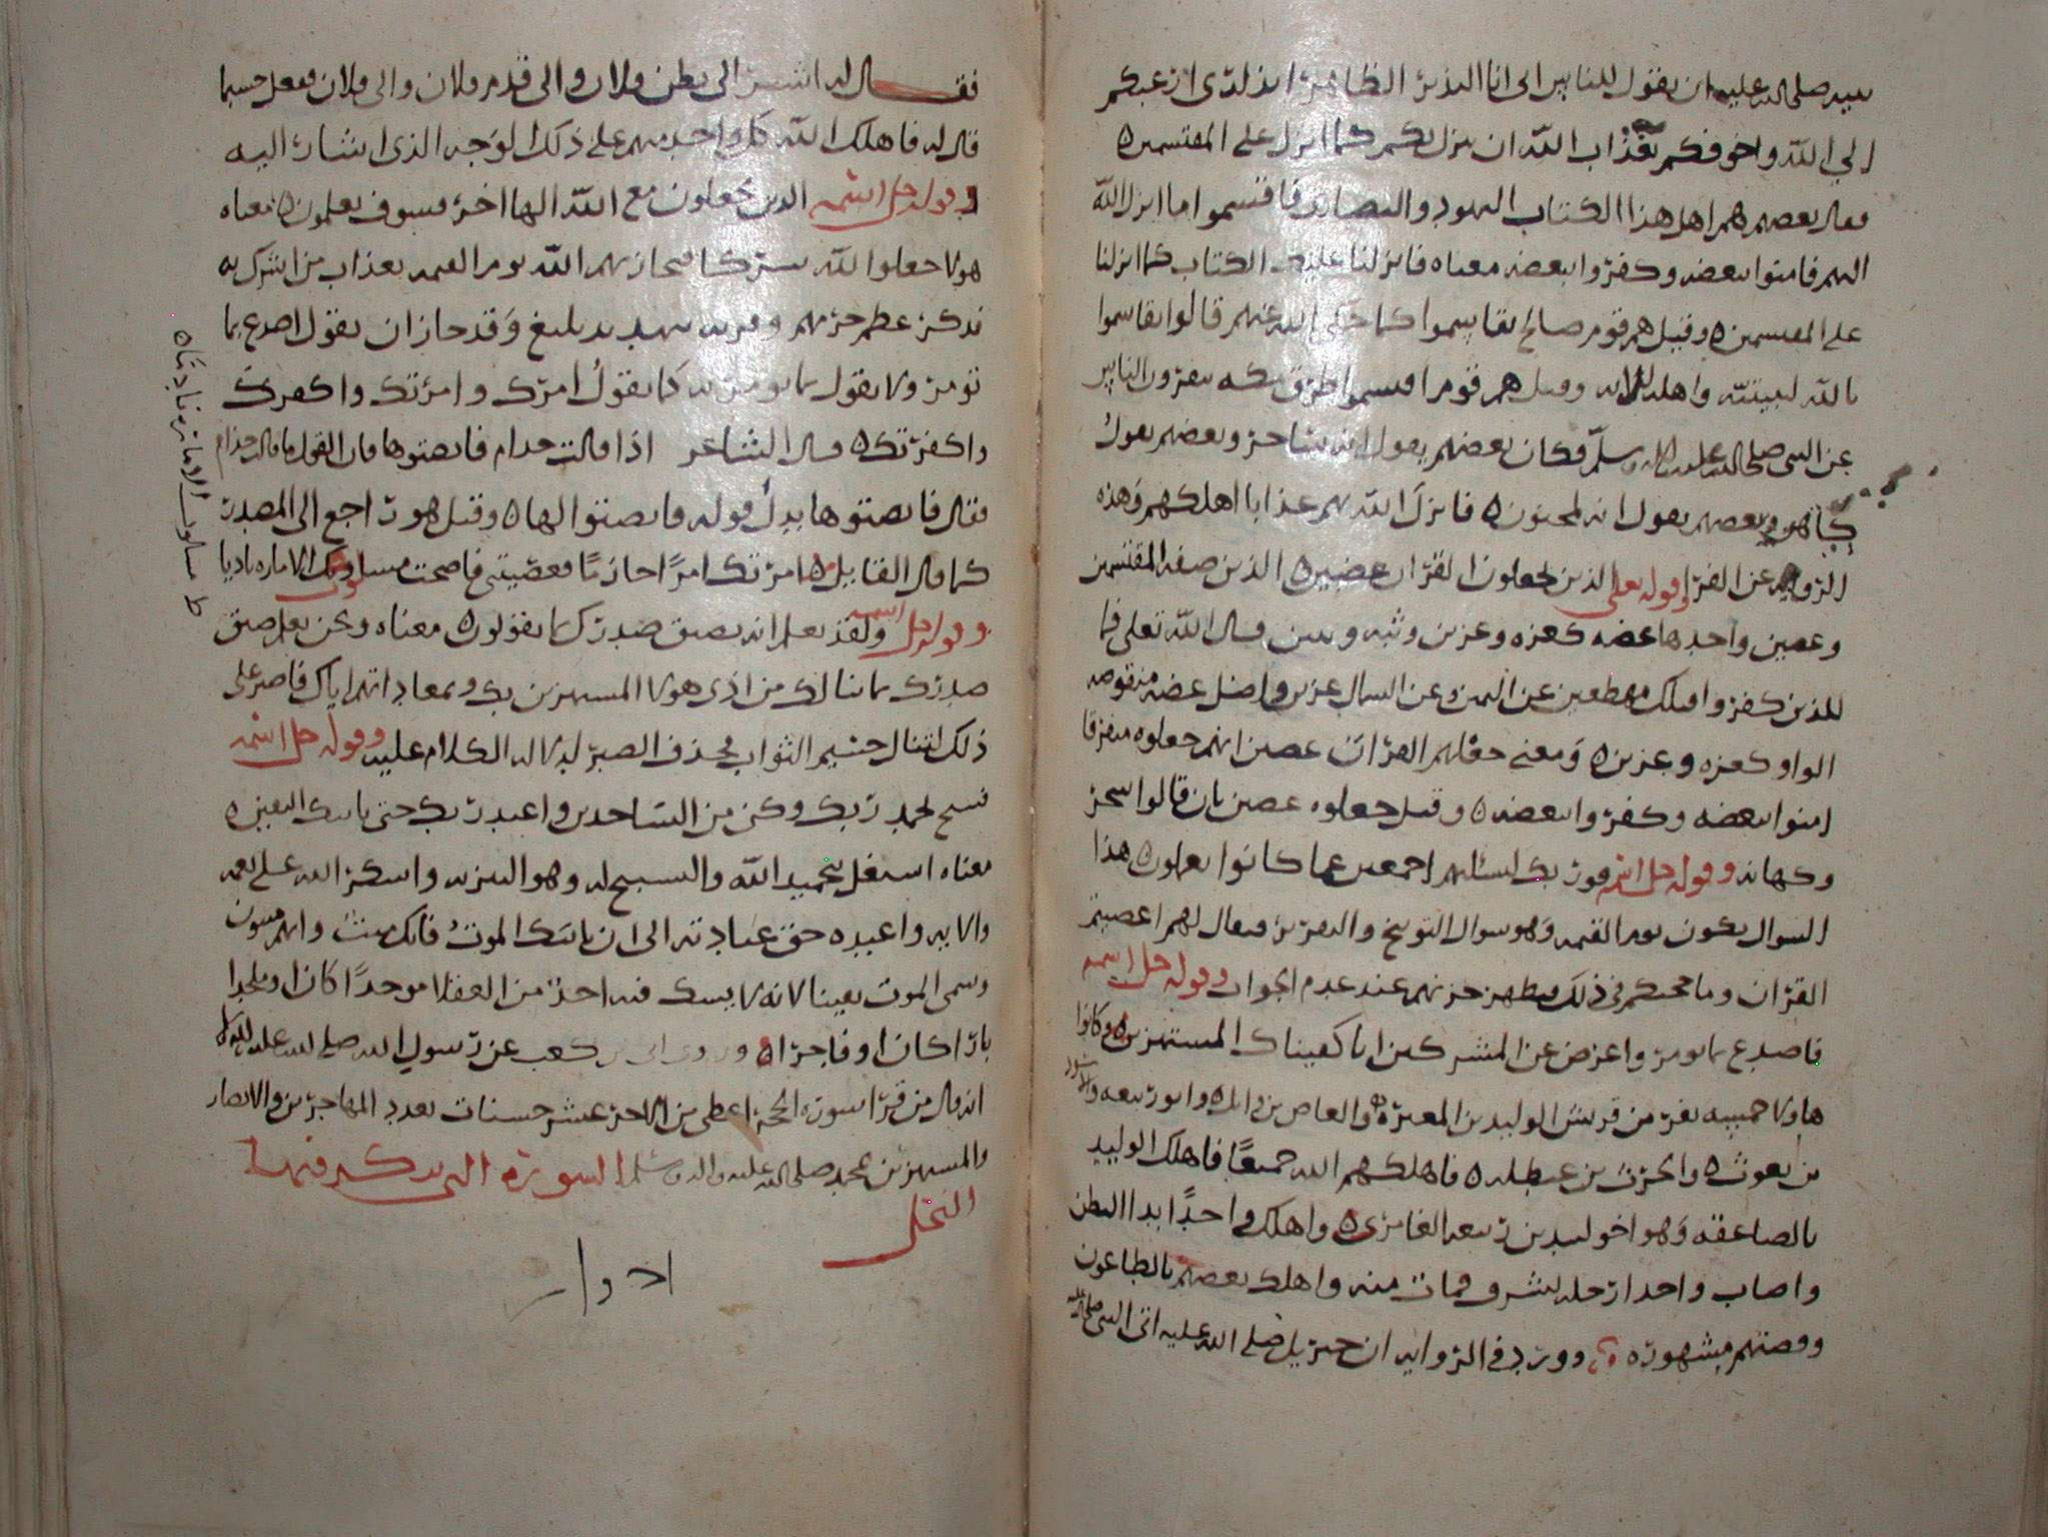 نبيه صلى الله عليه ان يقول للناس اني انا النذير الظاهر انذاري ازعبكم
الي الله واخوفكم بعذاب الله ان ينزل بكم كما انزل على المقتسمين ه
فقال بعضهم هم اهل هذا الكتاب اليهود والنصارى فاقتسموا ما انزل الله
اليهم فامنوا ببعضه وكفروا ببعضه معناه فانزلنا عليك الكتاب كما انزلنا
على المقتسمين ه وقيل هم قوم صالح تقاسموا كما حكى الله عنهم قالوا تقاسموا
بالله لنبيتنه واهله الايه وقيل هم قوم اقتسموا طرق مكه ينفرون الناس
عن النبي صلى الله عليه واله وسلم فكان بعضهم يقول انه ساحر وبعضهم يقول
كاهن وبعضهم يقول انه لمجنون ه فانزل الله بهم عذابا اهلكهم وهذه
الروايه عن الفرا وقوله تعلى الذين جعلوا القران عضين ه الذين صفه المقتسمين
وعضين واحدها عضه كعزه وعزين وثبه وثبين قال الله تعلى فما
للذين كفروا قبلك مهطعين عن اليمين وعن الشمال عزين واصل عضه منقوصه
الواو كعزه وعزين ه ومعنى جعلهم القران عضين انهم جعلوه متفرقا
امنوا ببعضه وكفروا ببعضه ه وقيل جعلوه عضين بان قالوا سحر
وكهانه وقوله جل اسمه فوربك لنسئلنهم اجمعين عما كانوا يعملون ه هذا
السوال يكون يوم القيمه وهو سوال التوبيخ والتقرير فيقال لهم اعضيتم
القران وما حجتكم في ذلك فيظهر خزيهم عند عدم الجواب وقوله جل اسمه
فاصدع بما تومر واعرض عن المشركين انا كفيناك المستهزين ه وكانوا
هاولا خمسه نفر من قريش الوليد بن المغيره والعاص بن وايل ه وابو زمعه والاسود
بن يغوث ه والحرث بن عيطله ه فاهلكهم الله جميعا فاهلك الوليد
بالصاعقه وهو اخو لبيد بن ربيعه العامري ه واهلك واحدا بدا البطن
واصاب واحدا رجله بشرق فمات منه واهلك بعضهم بالطاعون
وقصتهم مشهوره ه وورد في الروايه ان جبريل صلى الله عليه اتى النبي صلى الله عليه
فقال له اشير الى بطن فلان والى قدم فلان والى فلان ففعل حسبما
قال له فاهلك الله كل واحد منهم على ذلك الوجه الذي اشار اليه
وقوله جل اسمه الذين يجعلون مع الله الها اخر فسوف يعلمون ه معناه
هولا جعلوا لله شركا فيجازيهم الله يوم القيمه بعذاب من اشرك به
فذكر عظم جرمهم وقرنه بتهديد بليغ وقد جاز ان يقول اصدع بما
تومر ولا يقول بما تومر به كما يقول امرك وامرتك واكفرك
واكفرتك ه قال الشاعر اذا قالت حدام فانصتوها فان القول ما قالت حذام
فقال فانصتوها بدل قوله فانصتوا لها ه وقيل هو راجع الى المصدر
كما قال القايل ه امرتك امرا حازما فعصيتني فاصبحت مسلوب الاماره نادما
وقوله جل اسمه ولقد نعلم انه يضيق صدرك بما يقولون ه معناه ونحن نعلم ضيق
صدرك بما نالك من اذى هولا المستهزين بك وبمعاداتهم اياك فاصبر على
ذلك لتنال جسيم الثواب فحذف الصبر لدلاله الكلام عليه وقوله جل اسمه
فسبح بحمد ربك وكن من الساجدين واعبد ربك حتى ياتيك اليقين ه
معناه اشتغل بتحميد الله والتسبيح له وهو التنزيه واشكر الله على نعمه
والايه واعبده حق عبادته الى ان ياتيك الموت فانك ميت وانهم ميتون
وسمى الموت يقينا لانه لا يشك فيه احد من العقلا موحدا كان او ملحدا
بارا كان او فاجرا ه وروى ابي بن كعب عن رسول الله صلى الله عليه واله
انه قال من قرا سوره الحجر اعطي من الاجر عشر حسنات بعدد المهاجرين والانصار
والمستهزين بمحمد صلى الله عليه واله وسلم السوره التي يذكر فيها
النحل